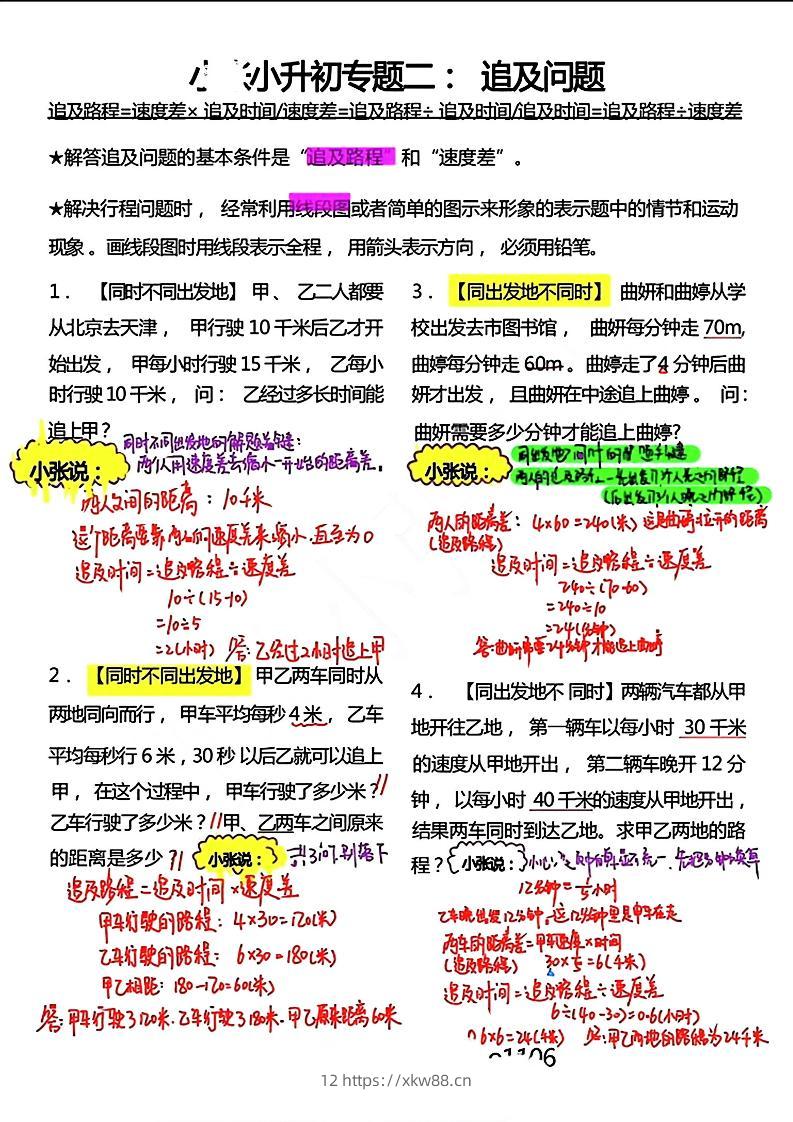 小张小升初专题二： 追及问题
追及路程=速度差× 追及时间/速度差=追及路程÷ 追及时间/追及时间=追及路程÷速度差
★解答追及问题的基本条件是“追及路程”和“速度差”。
★解决行程问题时， 经常利用线段图或者简单的图示来形象的表示题中的情节和运动
现象。画线段图时用线段表示全程， 用箭头表示方向， 必须用铅笔。
1． 【同时不同出发地】 甲、 乙二人都要
从北京去天津， 甲行驶 10 千米后乙才开
始出发， 甲每小时行驶 15 千米， 乙每小
时行驶 10 千米， 问： 乙经过多长时间能
追上甲？
同时不同出发地的解题关键:
两人用速度差去缩小一开始的距离差。
小张说：
两人之间的距离：10千米
这个距离要靠两人的速度差来缩小.直至为0
追及时间=追及路程÷速度差
10÷(15-10)
=10÷5
=2(小时) 答:乙经过2小时追上甲
2． 【同时不同出发地】 甲乙两车同时从
两地同向而行， 甲车平均每秒 4 米， 乙车
平均每秒行 6 米，30 秒 以后乙就可以追上
甲， 在这个过程中， 甲车行驶了多少米？
乙车行驶了多少米？ 甲、乙两车之间原来
的距离是多少？ 小张说： 共3问.别落下
追及路程=追及时间×速度差
甲车行驶的路程: 4×30=120(米)
乙车行驶的路程: 6×30=180(米)
甲乙相距: 180-120=60(米)
答:甲车行驶了120米.乙车行驶了180米.甲乙原来距离60米
3． 【同出发地不同时】 曲妍和曲婷从学
校出发去市图书馆， 曲妍每分钟走 70m,
曲婷每分钟走 60m 。曲婷走了4 分钟后曲
妍才出发， 且曲妍在中途追上曲婷 。 问：
曲妍需要多少分钟才能追上曲婷?
小张说：
同出发地不同时的解题关键
两人的追及路程=先出发的人先走的路程
(后出发的人晚走的路程)
两人的距离差: 4×60=240(米) 这是曲婷拉开的距离
(追及路程)
追及时间=追及路程÷速度差
240÷(70-60)
=240÷10
=24(分钟)
答:曲妍需要24分钟才能追上曲婷
4． 【同出发地不 同时】两辆汽车都从甲
地开往乙地， 第一辆车以每小时 30 千米
的速度从甲地开出， 第二辆车晚开 12 分
钟， 以每小时 40 千米的速度从甲地开出，
结果两车同时到达乙地。求甲乙两地的路
程？ 小张说：
12分钟=1/5小时
乙车晚出发12分钟,这12分钟里是甲车在走
两车的距离差=甲车速度×时间
(追及路程) 30×1/5=6(千米)
追及时间=追及路程÷速度差
6÷(40-30)=0.6(小时)
答:甲乙两地的路程为24千米
12 https://xkw88.cn